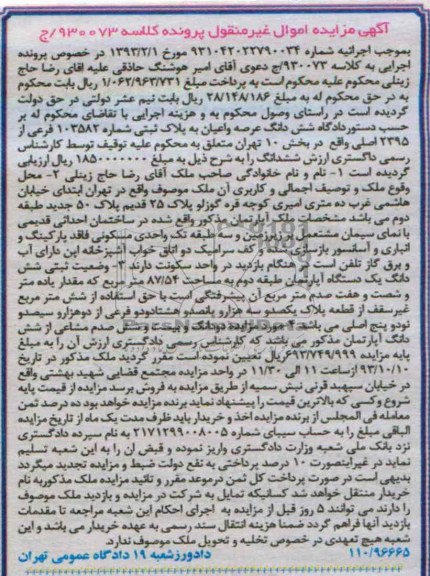 آگهی مزایده اموال غیرمنقول پرونده کلاسه ۹۳۰۰۷۳/ج
بموجب اجرائیه شماره ۹۳۱۰۴۲۰۲۲۷۹۰۰۳۴ مورخ ۱۳۹۳/۲/۱ در خصوص پرونده
اجرایی به کلاسه ۹۳۰۰۷۳/ج دعوی آقای امیر هوشنگ حاذقی علیه اقای رضا حاج
زینلی محکوم علیه محکوم است به پرداخت مبلغ ۱/۰۶۲/۹۶۳/۷۳۱ ریال بابت محکوم
به در حق محکوم له به مبلغ ۲۸/۱۴۸/۱۸۶ ریال بابت نیم عشر دولتی در حق دولت
گردیده است در راستای وصول محکوم به و هزینه اجرایی با تقاضای محکوم له بر
حسب دستوردادگاه شش دانگ عرصه واعیان به پلاک ثبتی شماره ۱۰۳۵۸۲ فرعی از
۲۳۹۵ اصلی واقع در بخش ۱۰ تهران متعلق به محکوم علیه توقیف توسط کارشناس
رسمی داگستری ارزش ششدانگ را به شرح ذیل به مبلغ ۱۸۵۰۰۰۰۰۰۰ ریال ارزیابی
گردیده است ۱- نام و نام خانوادگی صاحب ملک آقای رضا حاج زینلی ۲- محل
وقوع ملک و توصیف اجمالی و کاربری آن ملک موصوف واقع در تهران ابتدای خیابان
هاشمی غرب ده متری امیری کوچه قره گوزلو پلاک ۲۵ قدیم پلاک ۵۰ جدید طبقه
دوم می باشد. مشخصات ملک آپارتمان مذکور واقع شده در ساختمان احداثی قدیمی
با نمای سیمان مشتمل بر زیرزمین و سه طبقه تک واحدی مسکونی فاقد پارکینگ و
انباری و آسانسور بازسازی شده و کف سرامیک دو اتاق خواب آشپزخانه این دارای آب
و برق گاز تلفن است در هنگام بازدید در واحد سکونت دارند ۳- وضعیت ثبتی شش
دانگ یک دستگاه آپارتمان طبقه دوم به مساحت ۸۷/۵۴ متر مربع که مقدار یاده متر
و شصت و هفت صدم متر مربع آن پیشرفتگی است با حق استفاده از شش متر مربع
غیرسقف از قطعه پلاک یکصدو سه هزارو پانصدو هشتادودو فرعی از دوهزارو سیصدو
نودو پنج اصلی می باشد. مورد مزایده دودانگ و صدم مشاعی از شش
دانگ آپارتمان مذکور می باشد که کارشناس رسمی دادگستری ارزش آن را به مبلغ
پایه مزایده ۶۹۳/۷۴۹/۹۹۹ریال تعیین نموده است مقرر گردید ملک مذکور در تاریخ
۹۳/۱۰/۱۰ ازساعت ۱۱ الی ۱۱/۳۰ در واحد مزایده مجتمع قضایی شهید بهشتی واقع
در خیابان سپهبد قرنی نبش سمیه از طریق مزایده به فروش برسد مزایده از قیمت پایه
شروع وکسی که بالاترین قیمت را پیشنهاد نماید برنده مزایده خواهد بود ده درصد ثمن
معامله فی المجلس از برنده مزایده اخذ و خریدار باید ظرف مدت یک ماه از تاریخ مزایده
الباقی مبلغ را به حساب سیبای شماره ۲۱۷۱۲۹۹۰۰۸۰۰۵ به نام سپرده دادگستری
نزد بانک ملی شعبه وزارت دادگستری واریز نموده و قبض ان را به این شعبه تسلیم
نماید در غیراینصورت ۱۰ درصد پرداختی به نفع دولت ضبط و مزایده تجدید میگردد
بدیهی است در صورت پرداخت کل ثمن درموعد مقرر و تائید مزایده ملک مذکوربه نام
خریدار منتقل خواهد شد کسانیکه تمایل به شرکت در مزایده و بازدید ملک موصوف
را دارند می توانند ۵ روز قبل از مزایده به اجرای احکام این شعبه مراجعه تا مقدمات
بازدید آنها فراهم گردد ضمنا هزینه انتقال سند رسمی به عهده خریدار می باشد و این
شعبه هیچ تعهدی در خصوص تخلیه و تحویل ملک موصوف ندارد.
۱۱۰/۹۶۶۶۵ دادورزشعبه ۱۹ دادگاه عمومی تهران